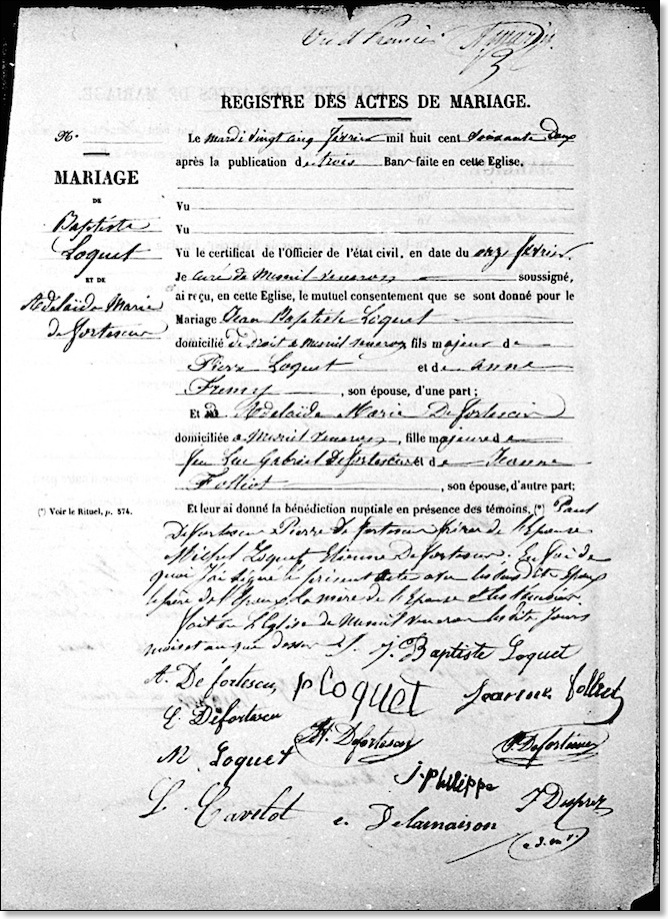 REGISTRE DES ACTES DE MARIAGE.
MARIAGE
DE
Baptiste
Loquet
ET DE
Adélaïde Marie
de fortescu
Le mardi vingt cinq février mil huit cent soixante deux
après la publication de trois Bans faite en cette Eglise,
Vu
Vu
Vu le certificat de l'Officier de l'état civil, en date du onze février.
Je curé de Mesnil-veneron soussigné,
ai reçu, en cette Eglise, le mutuel consentement que se sont donné pour le
Mariage Jean Baptiste Loquet
domicilié de droit a Mesnil veneron fils majeur de
Pierre Loquet et de anne
, son épouse, d'une part ;
Et Adelaide Marie Defortescu
domiciliée a Mesnil veneron, fille majeure de
feu Luc Gabriel Defortescu et de Jeanne
Folliot , son épouse, d'autre part;
(*) Voir le Rituel, p. 574.
Et leur ai donné la bénédiction nuptiale en présence des témoins, (*) Paul
Defortescu Pierre de fortescu frères de l'Epouse
Michel Loquet, Etienne Defortescu. En foi de
quoi J'ai signé le présent acte avec les susdits Epoux
le père de l'Epoux, la mère de l'Epouse et les témoins.
fait en l'Eglise de Mesnil veneron les dits Jours
mois et an que dessus J. Baptiste Loquet
A. De fortescu, P Loquet Jeanne folliot
E. Defortescu
Defortescu
Defortescu
M Loquet
J. philippe
L. Cavelot e Delamaison